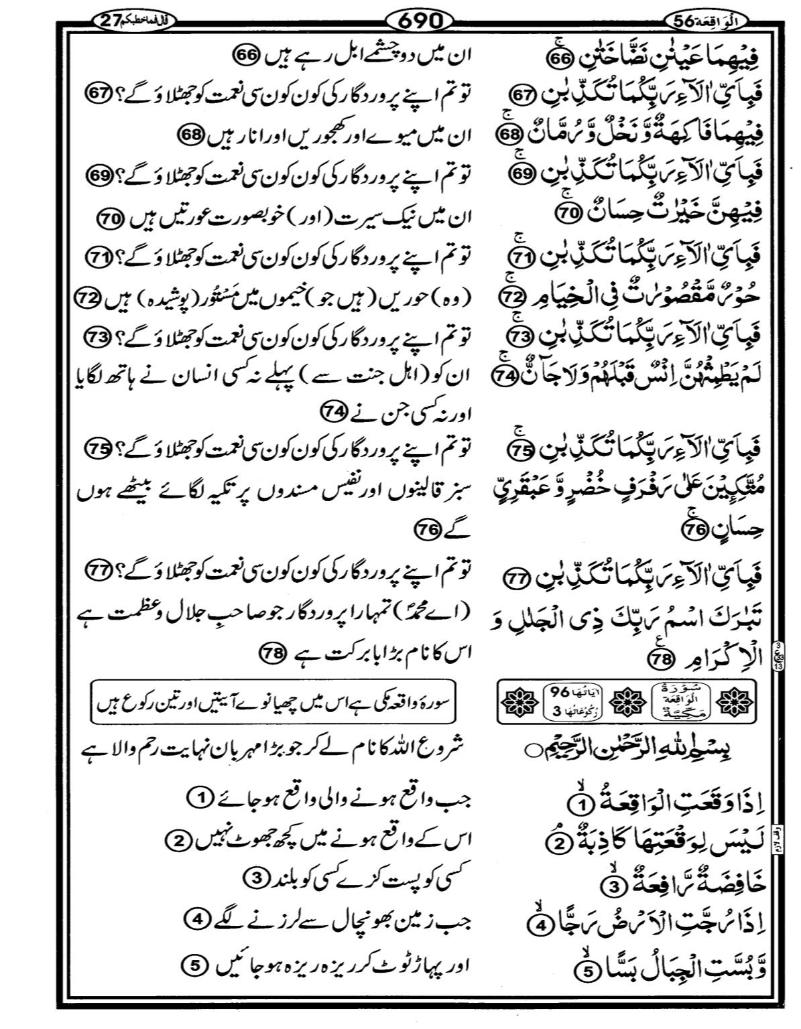 الواقعة 56
690
قال فما خطبكم 27
فِيْهِمَا عَيْنٰنِ نَضَّاخَتٰنِ ۚ 66
ان میں دو چشمے ابل رہے ہیں 66
فَبِاَيِّ اٰلَآءِ رَبِّكُمَا تُكَذِّبٰنِ 67
تو تم اپنے پروردگار کی کون کون سی نعمت کو جھٹلاؤ گے؟ 67
فِيْهِمَا فَاكِهَةٌ وَّنَخْلٌ وَّرُمَّانٌ ۚ 68
ان میں میوے اور کھجوریں اور انار ہیں 68
فَبِاَيِّ اٰلَآءِ رَبِّكُمَا تُكَذِّبٰنِ ۚ 69
تو تم اپنے پروردگار کی کون کون سی نعمت کو جھٹلاؤ گے؟ 69
فِيْهِنَّ خَيْرٰتٌ حِسَانٌ ۚ 70
ان میں نیک سیرت (اور) خوبصورت عورتیں ہیں 70
فَبِاَيِّ اٰلَآءِ رَبِّكُمَا تُكَذِّبٰنِ ۚ 71
تو تم اپنے پروردگار کی کون کون سی نعمت کو جھٹلاؤ گے؟ 71
حُوْرٌ مَّقْصُوْرٰتٌ فِي الْخِيَامِ ۚ 72
(وہ) حوریں (ہیں جو) خیموں میں مَستُور (پوشیدہ) ہیں 72
فَبِاَيِّ اٰلَآءِ رَبِّكُمَا تُكَذِّبٰنِ ۚ 73
تو تم اپنے پروردگار کی کون کون سی نعمت کو جھٹلاؤ گے؟ 73
لَمْ يَطْمِثْهُنَّ اِنْسٌ قَبْلَهُمْ وَلَا جَآنٌّ ۚ 74
ان کو (اہل جنت سے) پہلے نہ کسی انسان نے ہاتھ لگایا
اور نہ کسی جن نے 74
فَبِاَيِّ اٰلَآءِ رَبِّكُمَا تُكَذِّبٰنِ ۚ 75
تو تم اپنے پروردگار کی کون کون سی نعمت کو جھٹلاؤ گے؟ 75
مُتَّكِـِٕيْنَ عَلٰى رَفْرَفٍ خُضْرٍ وَّعَبْقَرِيٍّ
حِسَانٍ ۚ 76
سبز قالینوں اور نفیس مسندوں پر تکیہ لگائے بیٹھے ہوں
گے 76
فَبِاَيِّ اٰلَآءِ رَبِّكُمَا تُكَذِّبٰنِ 77
تو تم اپنے پروردگار کی کون کون سی نعمت کو جھٹلاؤ گے؟ 77
تَبٰرَكَ اسْمُ رَبِّكَ ذِي الْجَلٰلِ وَ
الْاِكْرَامِ 78
(اے محمدؐ) تمہارا پروردگار جو صاحبِ جلال و عظمت ہے
اس کا نام بڑا بابرکت ہے 78
سُوْرَةُ الْوَاقِعَة مَكِّيَّةٌ
اٰيَاتُهَا 96
رُكُوْعَاتُهَا 3
سورۂ واقعہ مکی ہے اس میں چھیانوے آیتیں اور تین رکوع ہیں
بِسْمِ اللّٰهِ الرَّحْمٰنِ الرَّحِيْمِ
شروع اللہ کا نام لے کر جو بڑا مہربان نہایت رحم والا ہے
اِذَا وَقَعَتِ الْوَاقِعَةُ ۙ 1
جب واقع ہونے والی واقع ہو جائے 1
لَيْسَ لِوَقْعَتِهَا كَاذِبَةٌ ۘ 2
وقف لازم
اس کے واقع ہونے میں کچھ جھوٹ نہیں 2
خَافِضَةٌ رَّافِعَةٌ ۙ 3
کسی کو پست کرے کسی کو بلند 3
اِذَا رُجَّتِ الْاَرْضُ رَجًّا ۙ 4
جب زمین بھونچال سے لرزنے لگے 4
وَّبُسَّتِ الْجِبَالُ بَسًّا ۙ 5
اور پہاڑ ٹوٹ کر ریزہ ریزہ ہو جائیں 5